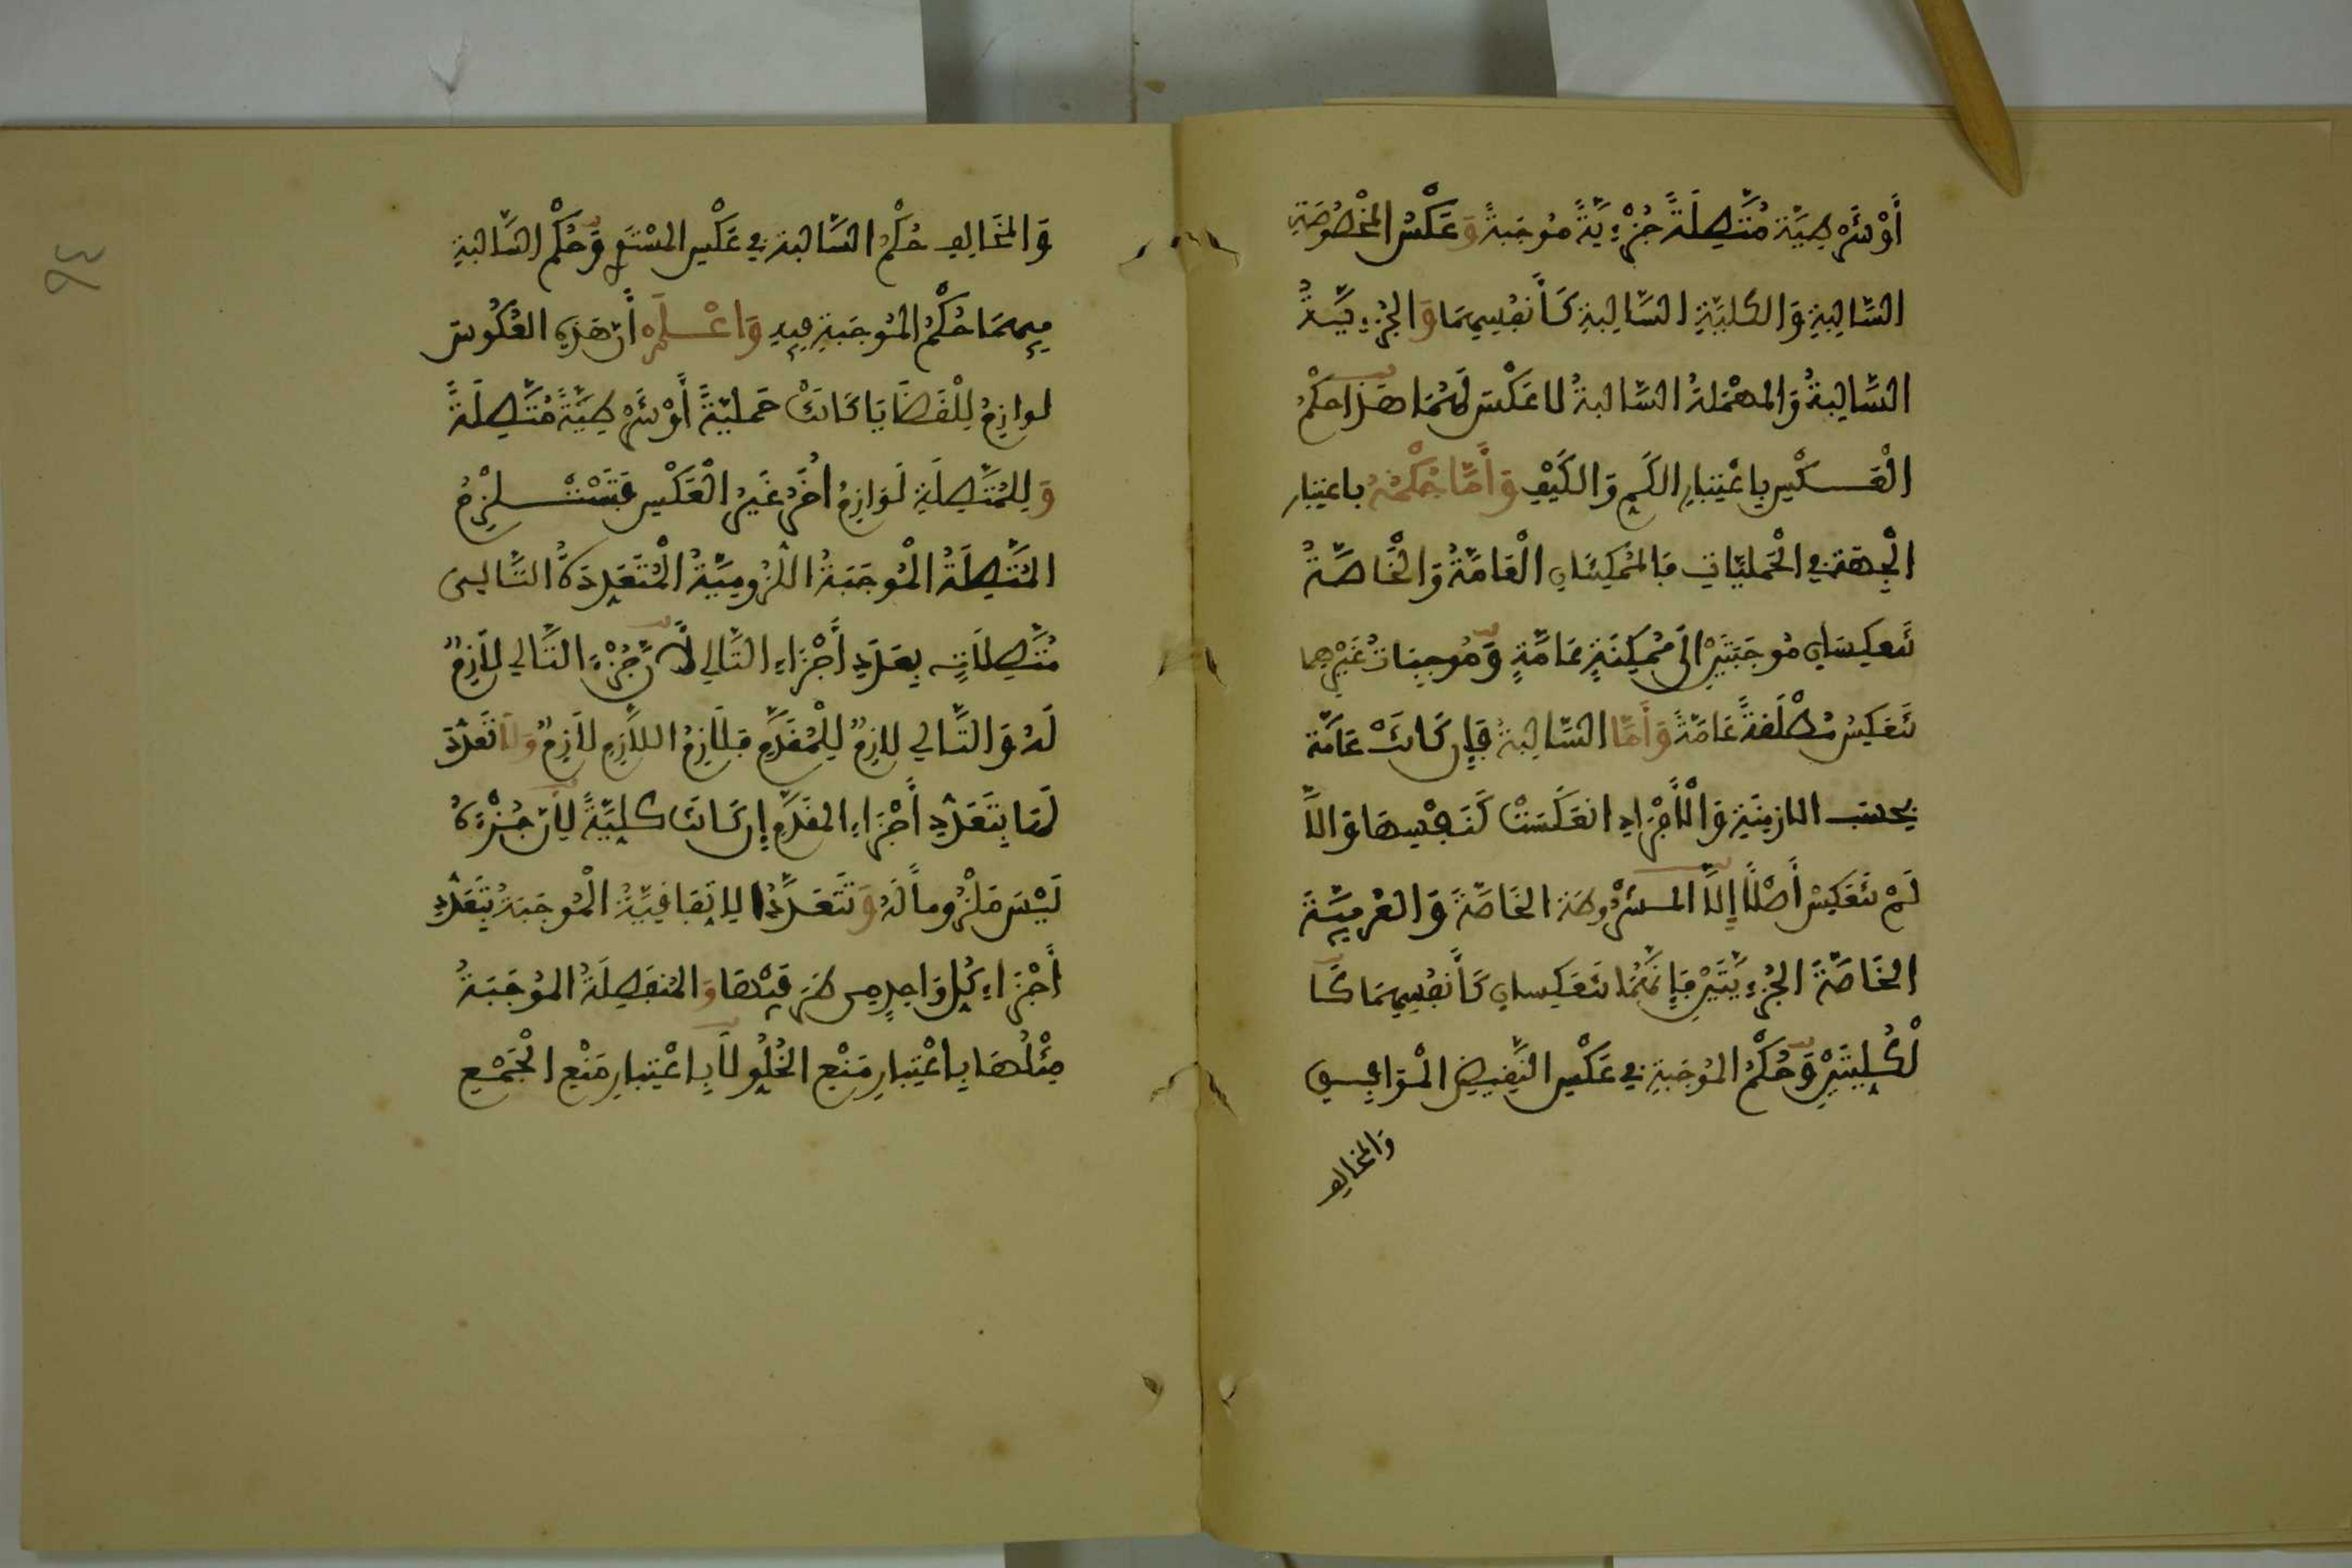 أَوْ شَرْطِيَّة مُتَّصِلَةً جُزْءِيَّةً مُوجَبَةً وَعَكْسُ المَخْصُوصَةِ
السَّالِبَةِ وَالكليَّةِ السَّالِبَةِ كَأَنفُسِهِمَا وَالجُزْءِيَّةُ
السَّالِبَةُ وَالمهْمَلةُ السَّالبَةُ لا عَكْسَ لَهُمَا هَذَا حكْمُ
الْعَكْسِ بِاعْتِبَارِ الكَمِ وَالكَيْفِ وَأَمَّا حُكْمُهُ باعتبار
الْجِهَة في الْحَمليَّاتِ فَالمُمْكِنَتَانِ الْعَامَّةُ وَالْخَاصَّةُ
تَنْعَكِسَانِ مُوجَبَتَيْنِ الَى مُمْكِنَةٍ عَامَّةٍ وَمُوجبَات غَيْرِهِما
تَنعَكِسُ مُطْلَقَةً عَامَّةً وَأَمَّا السَّالِبَةُ فَإِن كَانَتْ عَامَّة
بحسَب الازمِنَةِ وَالْأَفْرَادِ انعَكَسَتْ كَنَفْسِهَا وَالاَّ
لَمْ تَنْعَكِسْ أَصْلًا إِلاَّ المشْرُوطَة الخَاصَّةَ وَالعُرْفِيَّةَ
الخَاصَّةَ الجُزْءِيَّتَيْنِ فَإِنَّهُمَا تَنعَكِسانِ كَأَنفُسِهِمَا كَا
لْكُلِيَّتَيْنِ وَحُكْمُ المُوجَبَةِ في عَكْسِ النَّقِيضِ الْمُوَافِقِ
وَالمخَالِفِ
وَالمُخَالِفِ حُكْمُ السَّالبَة في عَكْسِ المسْتَوِي وَحُكْمُ السَّالبَةِ
فِيهِمَا حُكْمُ المُوجَبَةِ فِيهِ وَاعْلَمْ أَن هَذِهِ العُكُوسَ
لوازِمُ لِلْقَضَايَا كَانَتْ حَمليّةً أَوْ شَرْطِيَّةً مُتَّصِلَةً
وَلِلمُتَّصِلَةِ لَوَازِمُ أُخَرُ غَيْرُ الْعَكْسِ فَتَسْتَلْزِمُ
المُتَّصِلَةُ الْمُوجَبَةُ اللُّزُومِيَّةُ الْمُتَعَدِّدَةُ التَّالِي
مُتَّصِلَاتٍ بِعَدَدِ أَجْزَاءِ التَّالي لأَنَّ جُزْءَ التَّالي لَازِمٌ
لَهُ وَالتَّالي لازِمٌ لِلْمُقَدَّمِ فَلَازِمُ اللَّازِمِ لَازِمٌ وَلَا تَعَدُّدَ
لَهَا بِتَعَدُّدِ أَجْزَاءِ المقَدَّمِ إِن كَانَت كليَّةً لِأَنَّ جُزْءَهُ
لَيْسَ مَلْزُومًا لَهُ وَتَتَعَدَّدُ الِاتِّفَاقِيَّةُ الْمُوجَبَةُ بِتَعَدُّدِ
أَجْزَاءِ كُلِ وَاحِدٍ مِن طَرَفَيْهَا وَالمُنفَصِلَةُ المُوجَبَةُ
مِثْلُهَا بِاعْتِبَارِ مَنْعِ الخُلُوِ لَا بِاعْتِبارِ مَنْعِ الْجَمْعِ